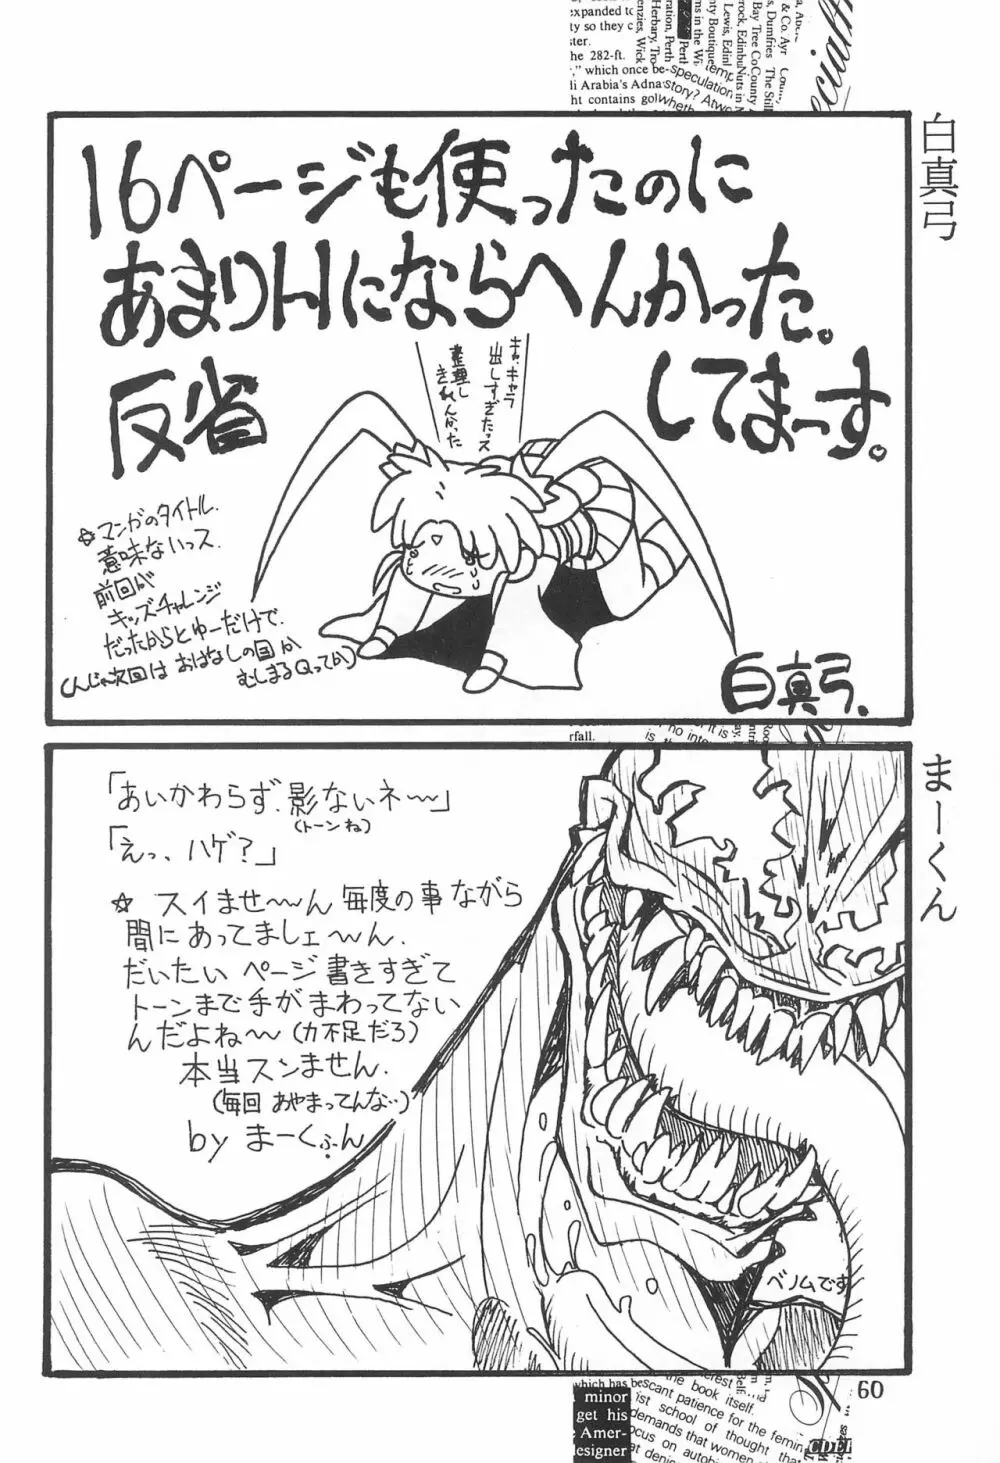 白真弓
16ページも使ったのに
あまりHにならへんかった。
反省してまーす。
キャ、キャラ
出しすぎたっス
整理し
きれんかった
☆マンガのタイトル.
意味ないっス.
前回が
キッズチャレンジ
だったからとゆーだけで.
(んじゃ次回は おはなしの国か
むしまるQってか)
白真弓.
まーくん
「あいかわらず、影ないネ〜」
(トーンね)
「えっ、ハゲ?」
☆ スイませ〜ん 毎度の事ながら
間にあってましェ〜ん.
だいたい ページ書きすぎて
トーンまで手がまわってない
んだよね〜(力不足だろ)
本当スンません.
(毎回 あやまってんな‥)
by まーくふん
ベノムです
60
xpanded to
ty so they c
ster.
the 282-ft.
," which once be-
li Arabia's Adna
ht contains gol
speculation
story? Atwo
wheth
rfall.
no inte
which has be
minor
get his
e Amer-
designer
scant patience for the femin
the book itself.
ist school of thought tha
demands that women
ocus on autobio
at denie
CDEF